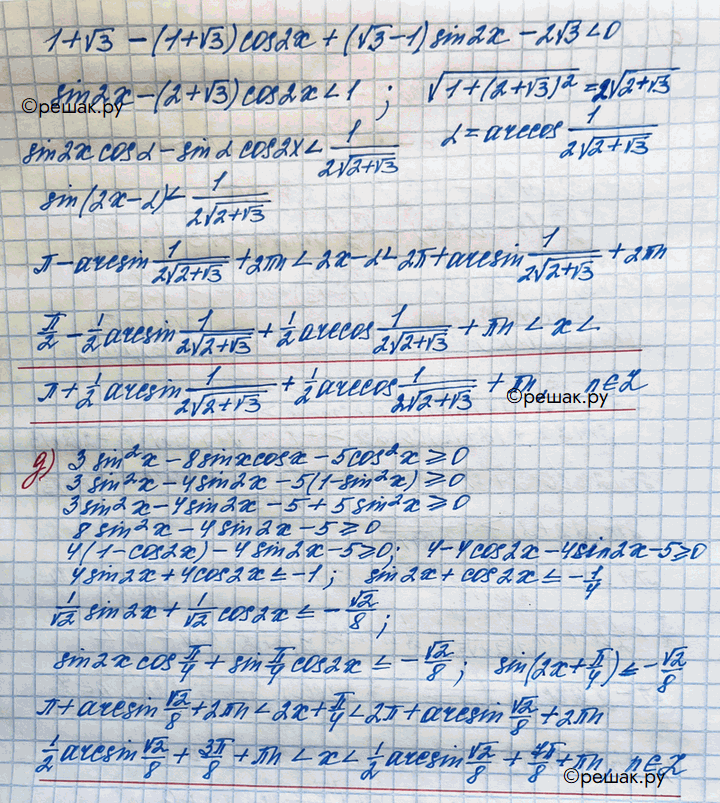 1+√3 − (1+√3)cos2x + (√3−1)sin2x − 2√3 < 0
sin2x − (2+√3)cos2x < 1 ; √(1+(2+√3)²) = 2√(2+√3)
©решак.ру
sin2x cosα − sinα cos2x < 1/(2√(2+√3)) α = arccos 1/(2√(2+√3))
sin(2x−α) < 1/(2√(2+√3))
π − arcsin 1/(2√(2+√3)) + 2πn < 2x − α < 2π + arcsin 1/(2√(2+√3)) + 2πn
π/2 − 1/2 arcsin 1/(2√(2+√3)) + 1/2 arccos 1/(2√(2+√3)) + πn < x <
π + 1/2 arcsin 1/(2√(2+√3)) + 1/2 arccos 1/(2√(2+√3)) + πn, n∈Z
©решак.ру
д) 3sin²x − 8sinxcosx − 5cos²x ⩾ 0
3sin²x − 4sin2x − 5(1−sin²x) ⩾ 0
3sin²x − 4sin2x − 5 + 5sin²x ⩾ 0
8sin²x − 4sin2x − 5 ⩾ 0
4(1−cos2x) − 4sin2x − 5 ⩾ 0; 4 − 4cos2x − 4sin2x − 5 ⩾ 0
4sin2x + 4cos2x ⩽ −1 ; sin2x + cos2x ⩽ −1/4
1/√2 sin2x + 1/√2 cos2x ⩽ −√2/8 ;
sin2x cos π/4 + sin π/4 cos2x ⩽ −√2/8 ; sin(2x + π/4) ⩽ −√2/8
π + arcsin √2/8 + 2πn < 2x + π/4 < 2π + arcsin √2/8 + 2πn
1/2 arcsin √2/8 + 3π/8 + πn < x < 1/2 arcsin √2/8 + 7π/8 + πn, n∈Z
©решак.ру